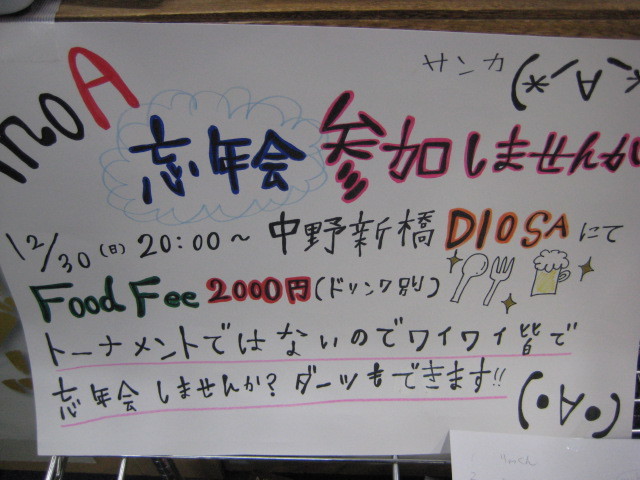 moA
サンカ (*´∀`*)
忘年会 参加しませんか
12/30(日) 20:00~ 中野新橋 DIOSA にて
Food Fee 2000円(ドリンク別)
トーナメントではないのでワイワイ皆で
忘年会しませんか?ダーツもできます!! (・A・)